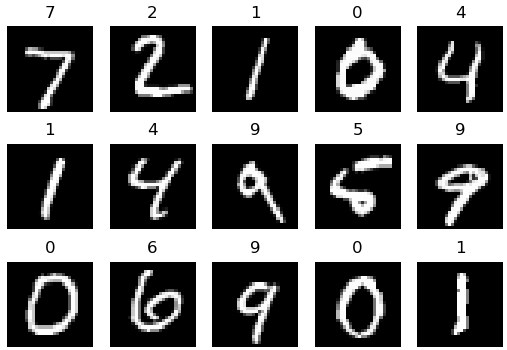 7 2 1 0 4
7 2 1 0 4
1 4 9 5 9
1 4 9 5 9
0 6 9 0 1
0 6 9 0 1